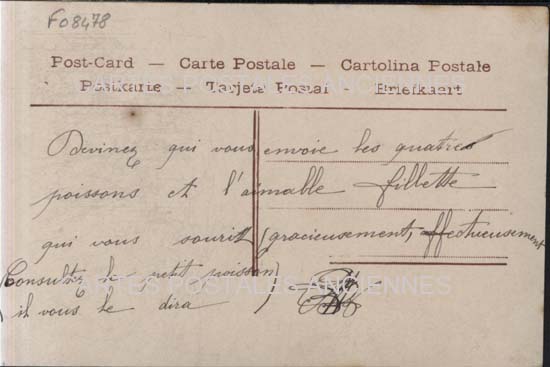 F08478
Post-Card — Carte Postale — Cartolina Postale
Postkarte — Tarjeta Postal - Briefkaart
CARTES POSTALES ANCIENNES
Devinez qui vous envoie les quatres
poissons et l'aimable fillette
qui vous sourit (gracieusement, affectueusement
(Consultez le petit poisson)
CARTES POSTALES ANCIENNES
(il vous le dira)